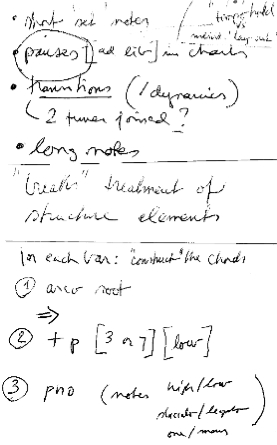 • short "set" notes
• pauses [ad lib] in charts
• transitions (/dynamics)
2 tunes joined?
• long notes
"break" treatment of
structure elements
In each var: "construct" the chords
① arco root
⇒
② + p [3 or 7] [low]
③ pno (notes high/low
staccato/legato
one/many)